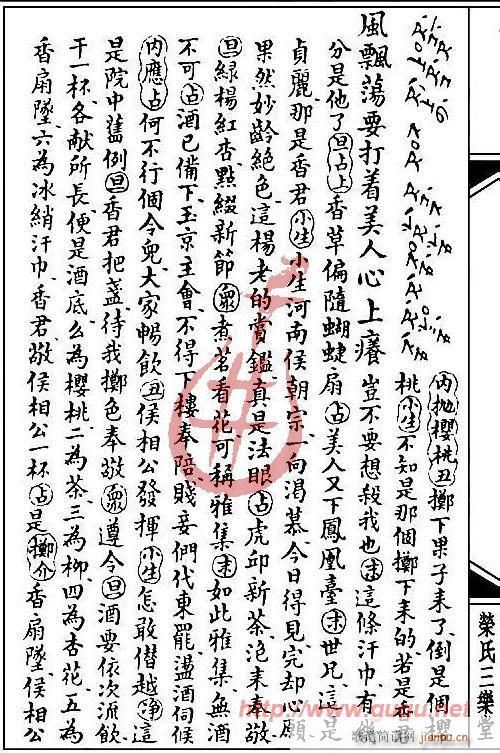 內抛櫻桃丑擲下果子来了倒是個
風飄蕩要打着美人心上癢豈不要想殺我也末這條汗巾有
桃小生不知是那個擲下来的若是香
分是他了旦占上香草偏隨蝴蝶扇占美人又下鳳凰臺末世兄這
貞麗那是香君小生小生河南侯朝宗一向渴慕今日得見完却心
果然妙齡絕色這楊老的賞鑑真是法眼占虎邱新茶泡来奉敬
旦綠楊紅杏點綴新節眾煮茗看花可稱雅集末如此雅集無酒
不可占酒已備下玉京主會不得下樓奉陪賤妾們代東罷盪酒伺候
內應占何不行個令兒大家暢飲丑侯相公發揮小生怎敢僭越淨這
是院中舊例旦香君把盞待我擲色奉敬眾遵令旦酒要依次流飲
干一杯各献所長便是酒底么為櫻桃二為茶三為柳四為杏花五為
香扇墜六為冰綃汗巾香君敬侯相公一杯占是擲介香扇墜侯相公
榮氏三樂堂
www.jianpu.cn